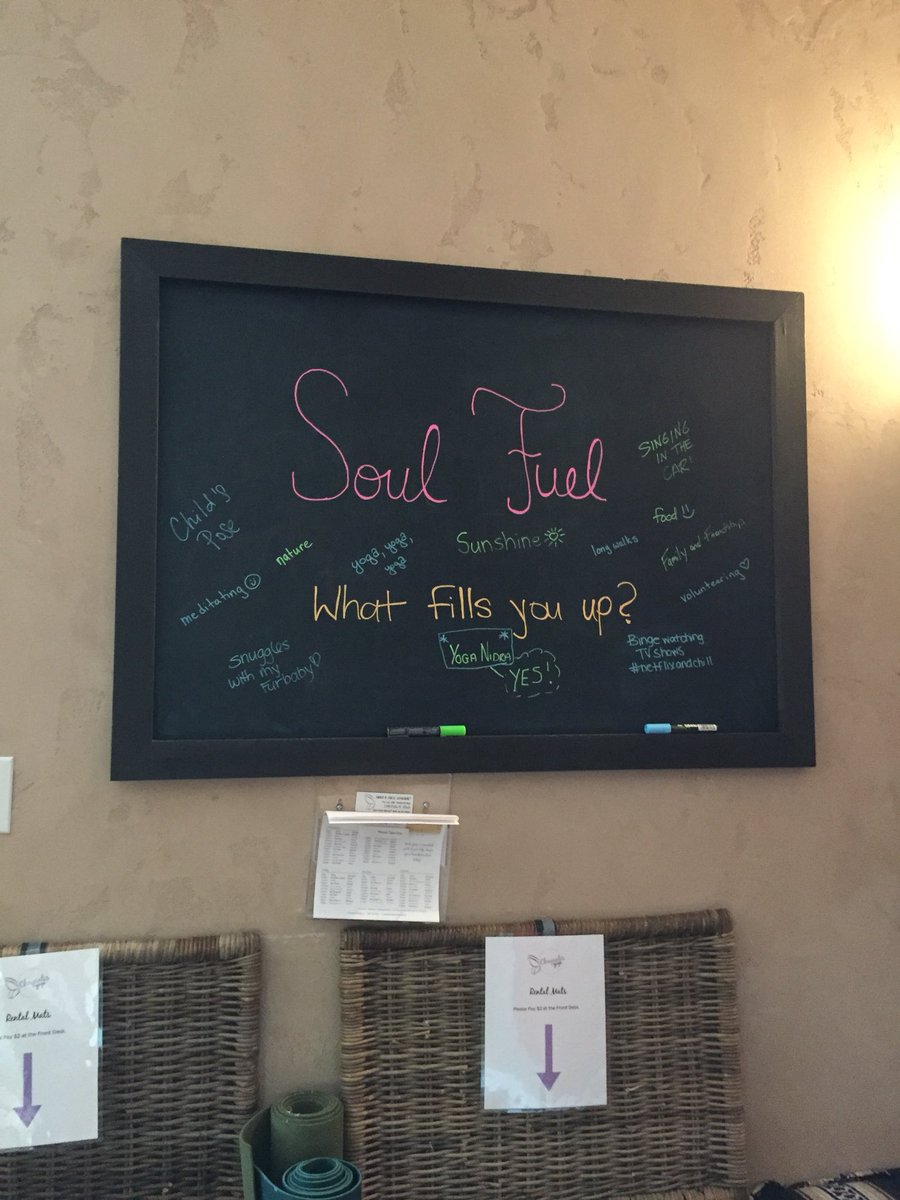 Soul Fuel
SINGING
IN THE
CAR!
Child's
Pose
nature
yoga, yoga,
yoga
Sunshine
long walks
food
Family and Friendship
meditating
volunteering
What fills you up?
snuggles
with my
Furbaby
YOGA NIDRA
YES!
Binge watching
TV shows
#netflixandchill
Rental Mats
Pay $2 at the Front Desk.
Rental Mats
Please Pay $2 at the Front Desk.